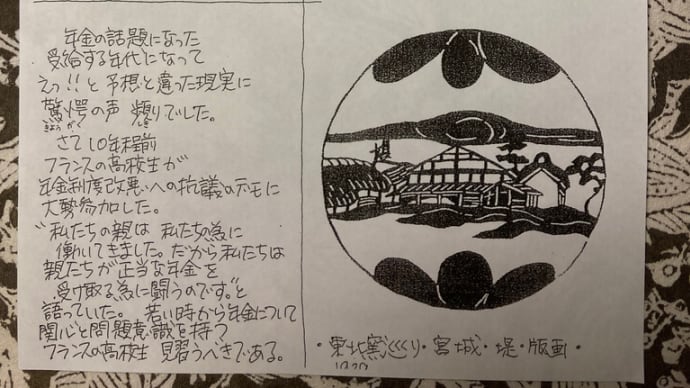 年金の話題になった
受給する年代になって
えっ!!と予想と違った現実に
驚愕の声 頻りでした。
きょうがく しき
さて10年程前
フランスの高校生が
年金制度改悪への抗議のデモに
大勢参加した。
“私たちの親は 私たちの為に
働いてきました。だから私たちは
親たちが正当な年金を
受け取る為に闘うのです。”と
語っていた。 若い時から年金について
関心と問題意識を持つ
フランスの高校生 見習うべきである。
・東北窯巡り・宮城・堤・版画・